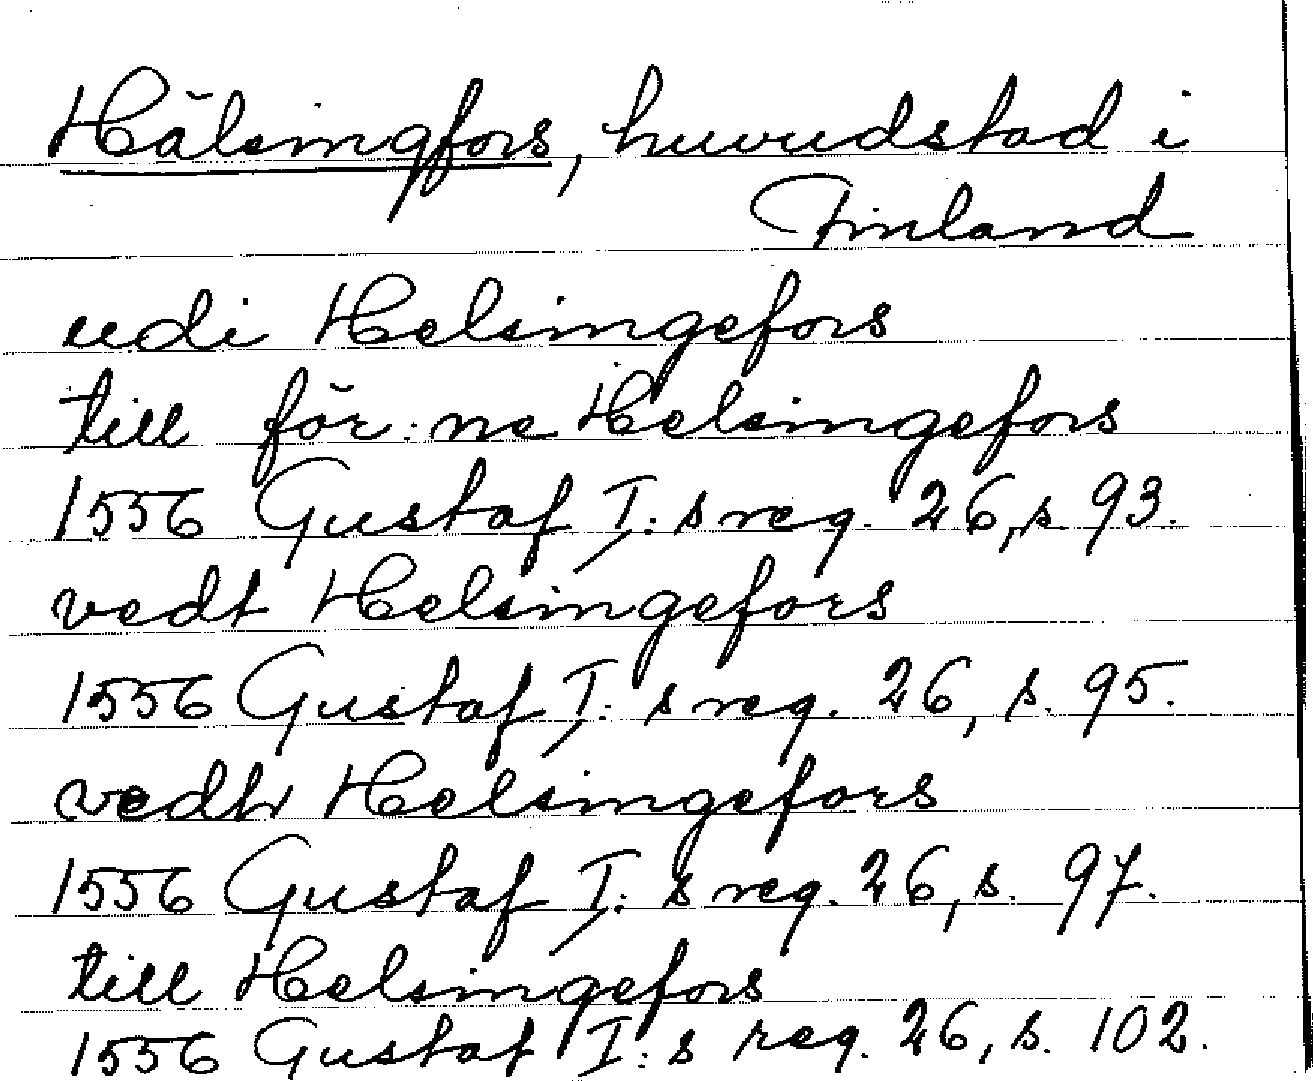 Hälsingfors, huvudstad i
Finland
udi Helsingefors
till för:ne Helsingefors
1556 Gustaf I:s reg. 26, s. 93.
vedt Helsingefors
1556 Gustaf I:s reg. 26, s. 95.
vedh Helsingefors
1556 Gustaf I:s reg. 26, s. 97.
till Helsingefors
1556 Gustaf I:s reg. 26, s. 102.